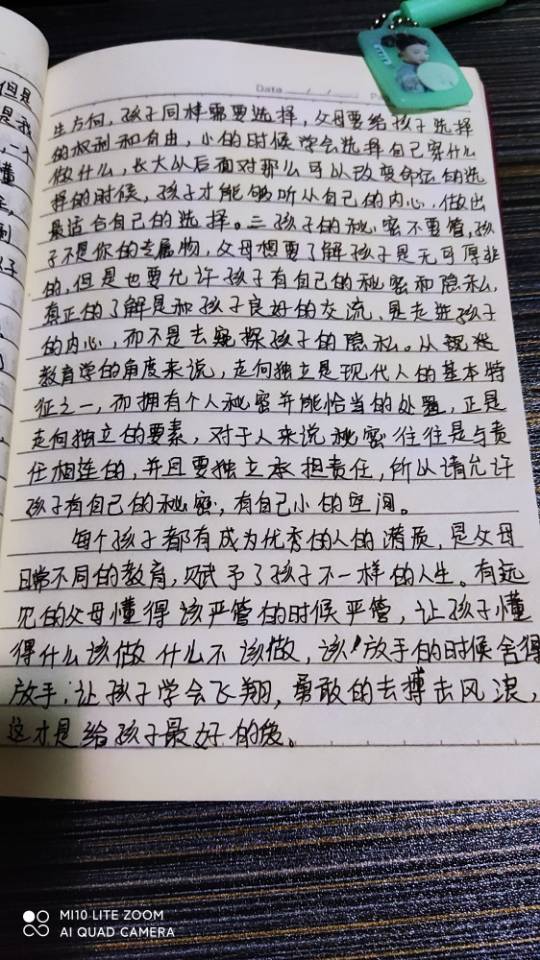 Date
生方向，孩子同样需要选择，父母要给孩子选择
的权利和自由，小的时候学会选择自己穿什么
做什么，长大以后面对那么可以改变命运的选
择的时候，孩子才能够听从自己的内心，做出
最适合自己的选择。三孩子的秘密不要管，孩
子不是你的专属物，父母想要了解孩子是无可厚非
的，但是也要允许孩子有自己的秘密和隐私，
真正的了解是和孩子良好的交流，是走进孩子
的内心，而不是去窥探孩子的隐私。从现代
教育学的角度来说，走向独立是现代人的基本特
征之一，而拥有个人秘密并能恰当的处置，正是
走向独立的要素，对于人来说秘密往往是与责
任相连的，并且要独立承担责任，所以请允许
孩子有自己的秘密，有自己小的空间。
每个孩子都有成为优秀的人的潜质，是父母
日常不同的教育，赋予了孩子不一样的人生。有远
见的父母懂得该严管的时候严管，让孩子懂
得什么该做什么不该做，该！放手的时候舍得
放手；让孩子学会飞翔，勇敢的去搏击风浪，
这才是给孩子最好的爱。
MI10 LITE ZOOM
AI QUAD CAMERA